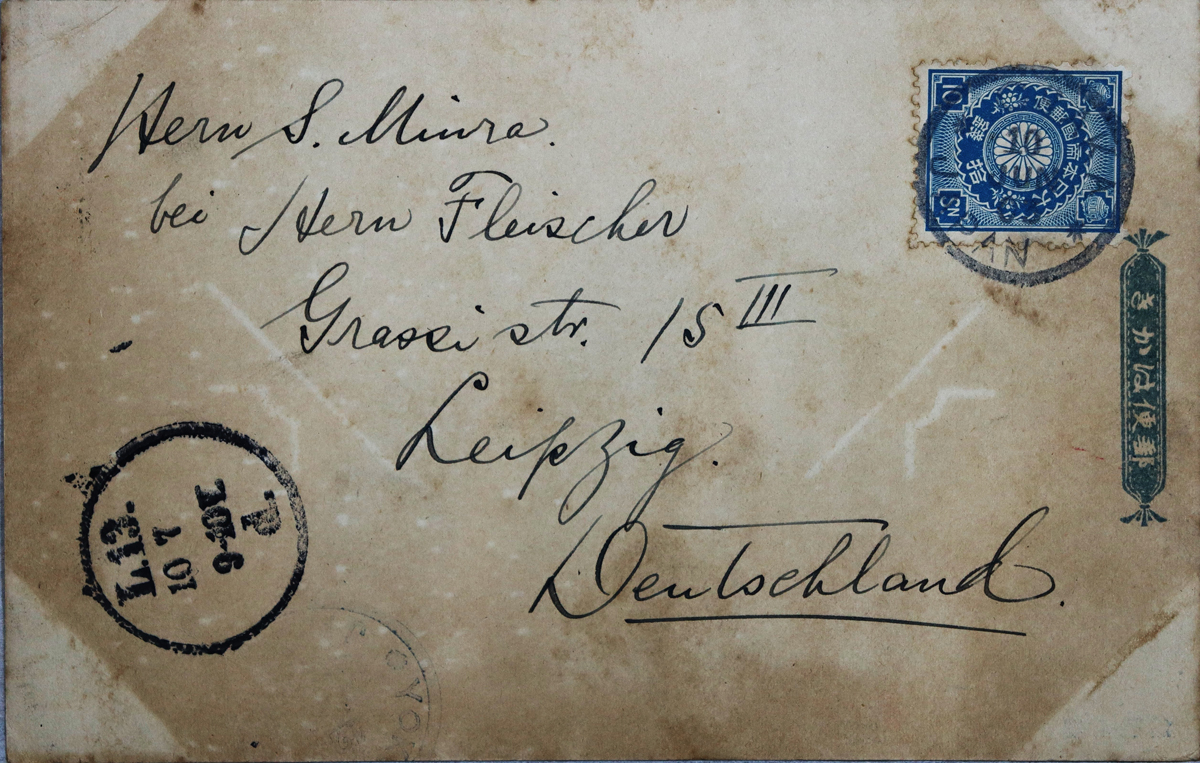 Herrn S. Miura.
bei Herrn Fleischer
Grassi str. 15 III
Leipzig.
Deutschland.
10 SN
大日本帝國郵便
拾錢
JAPAN
郵便はかき
L.13.
10 7
P.